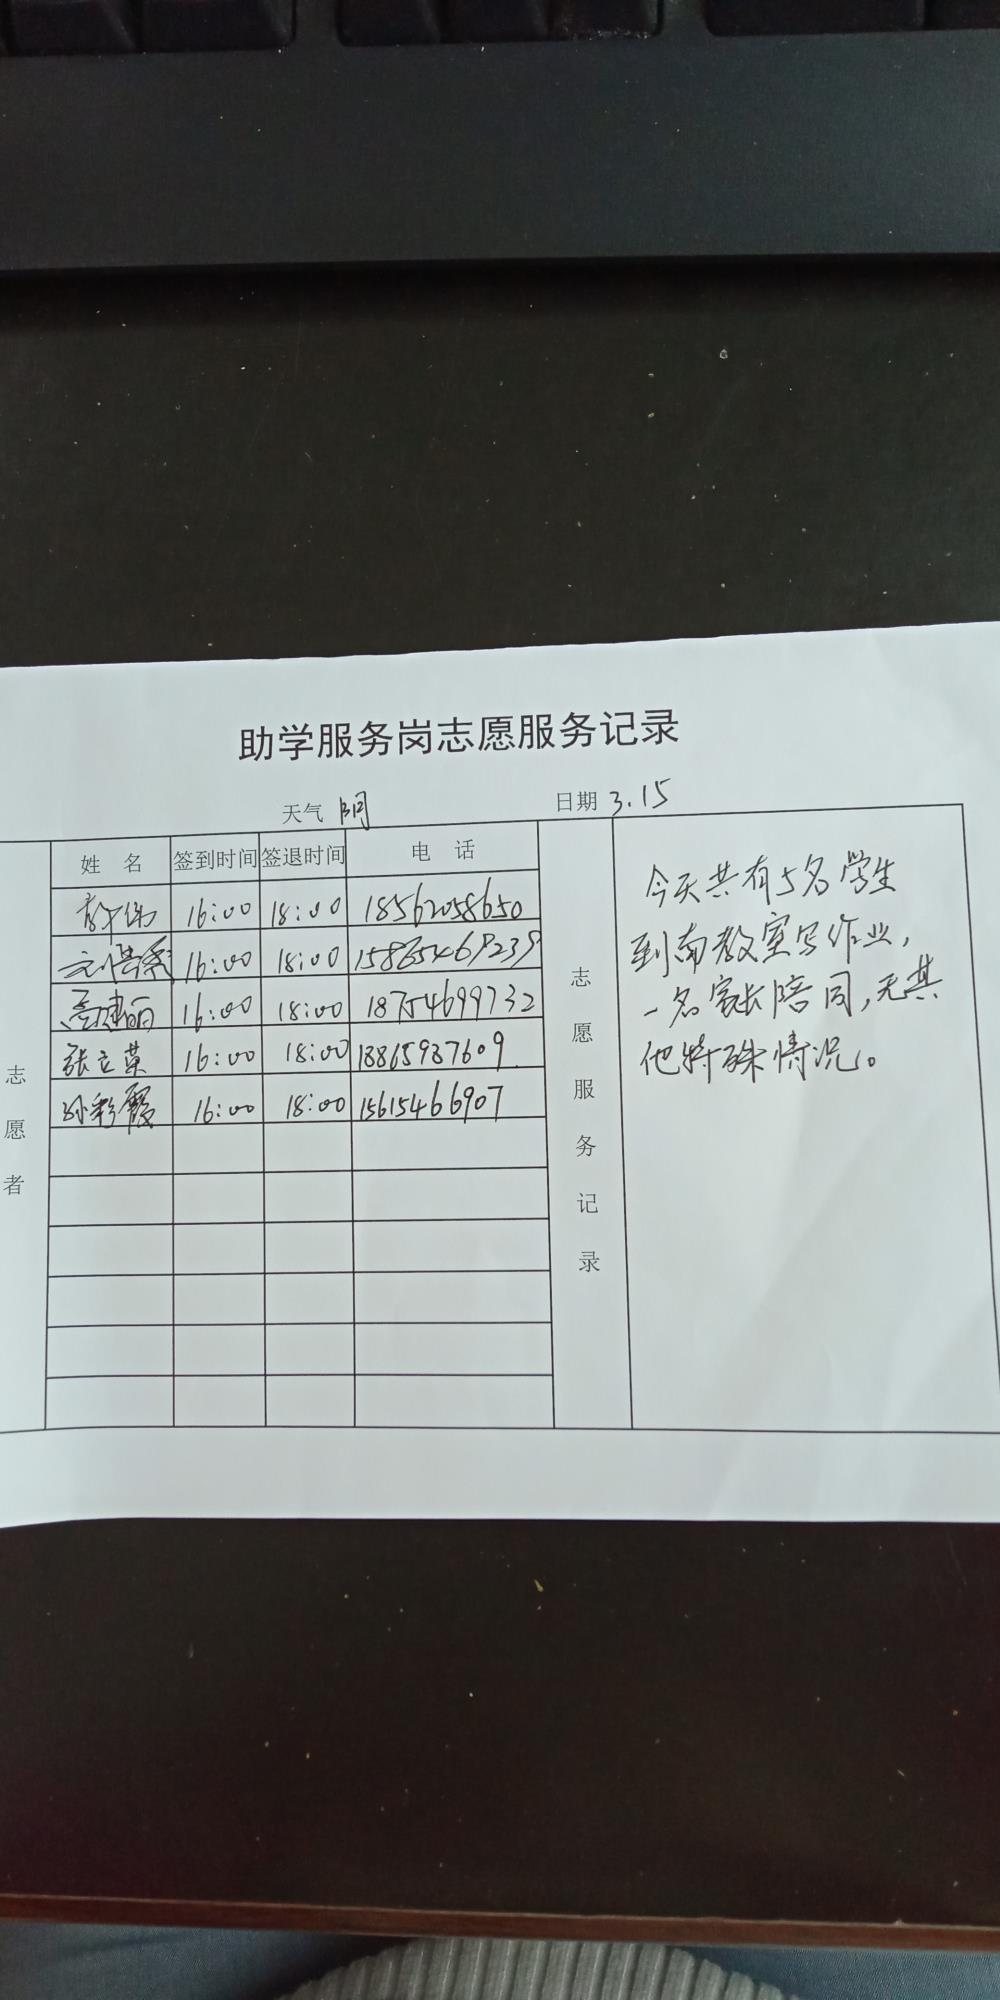 助学服务岗志愿服务记录
天气 阴 日期 3.15
姓 名 签到时间 签退时间 电 话
16:00 18:00 18562058650
16:00 18:00 15865469239
高建丽 16:00 18:00 18754699732
张立英 16:00 18:00 18865937609
孙彩霞 16:00 18:00 15615466907
志愿者
志愿服务记录
今天共有5名学生
到南教室写作业,
一名家长陪同,无其
他特殊情况。